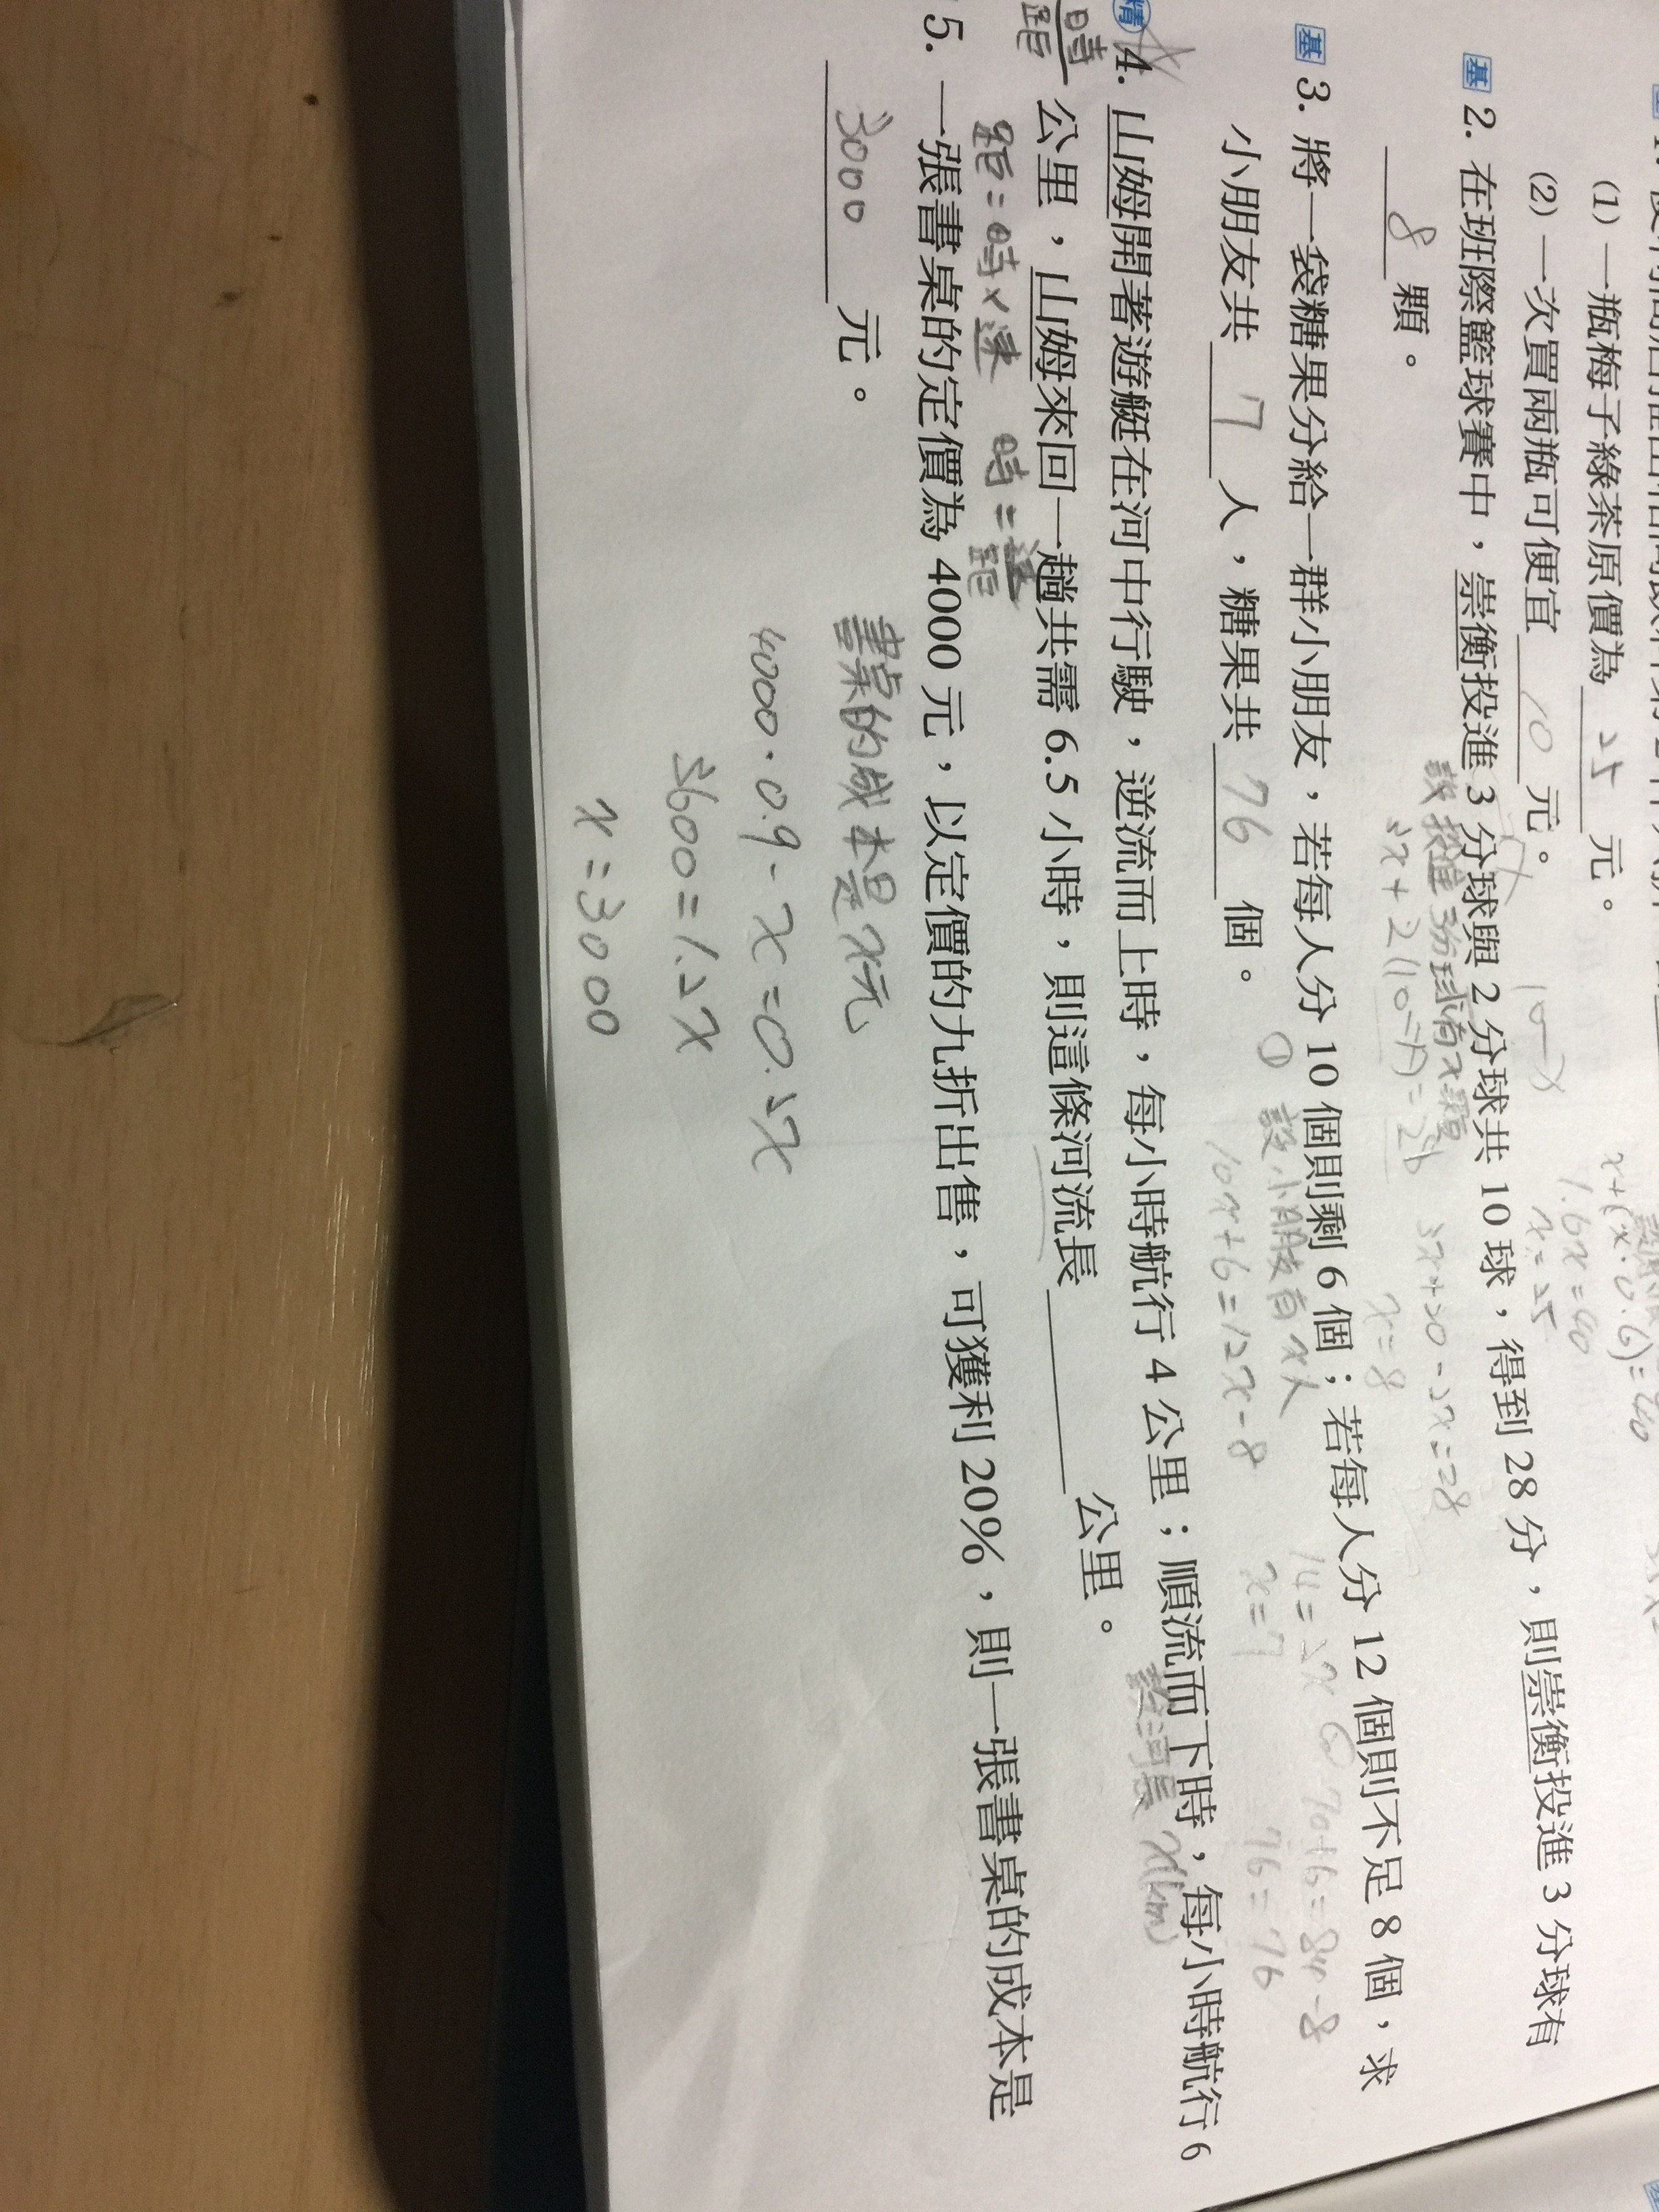 (1) 一瓶梅子綠茶原價為 25 元。
(2) 一次買兩瓶可便宜 10 元。
1.6x=40
x=25
基 2. 在班際籃球賽中，崇衡投進 3 分球與 2 分球共 10 球，得到 28 分，則崇衡投進 3 分球有
8 顆。
設投進3分球有x顆
3x+2(10-x)=28
3x+20-2x=28
x=8
基 3. 將一袋糖果分給一群小朋友，若每人分 10 個則剩 6 個；若每人分 12 個則不足 8 個，求
小朋友共 7 人，糖果共 76 個。
① 設小朋友有x人
10x+6=12x-8
14=2x
x=7
70+6=84-8
76=76
精 4. 山姆開著遊艇在河中行駛，逆流而上時，每小時航行 4 公里；順流而下時，每小時航行 6
公里，山姆來回一趟共需 6.5 小時，則這條河流長 公里。
設河長x(km)
距=時×速
5. 一張書桌的定價為 4000 元，以定價的九折出售，可獲利 20%，則一張書桌的成本是
3000 元。
書桌的成本是x元
4000·0.9-x=0.2x
3600=1.2x
x=3000